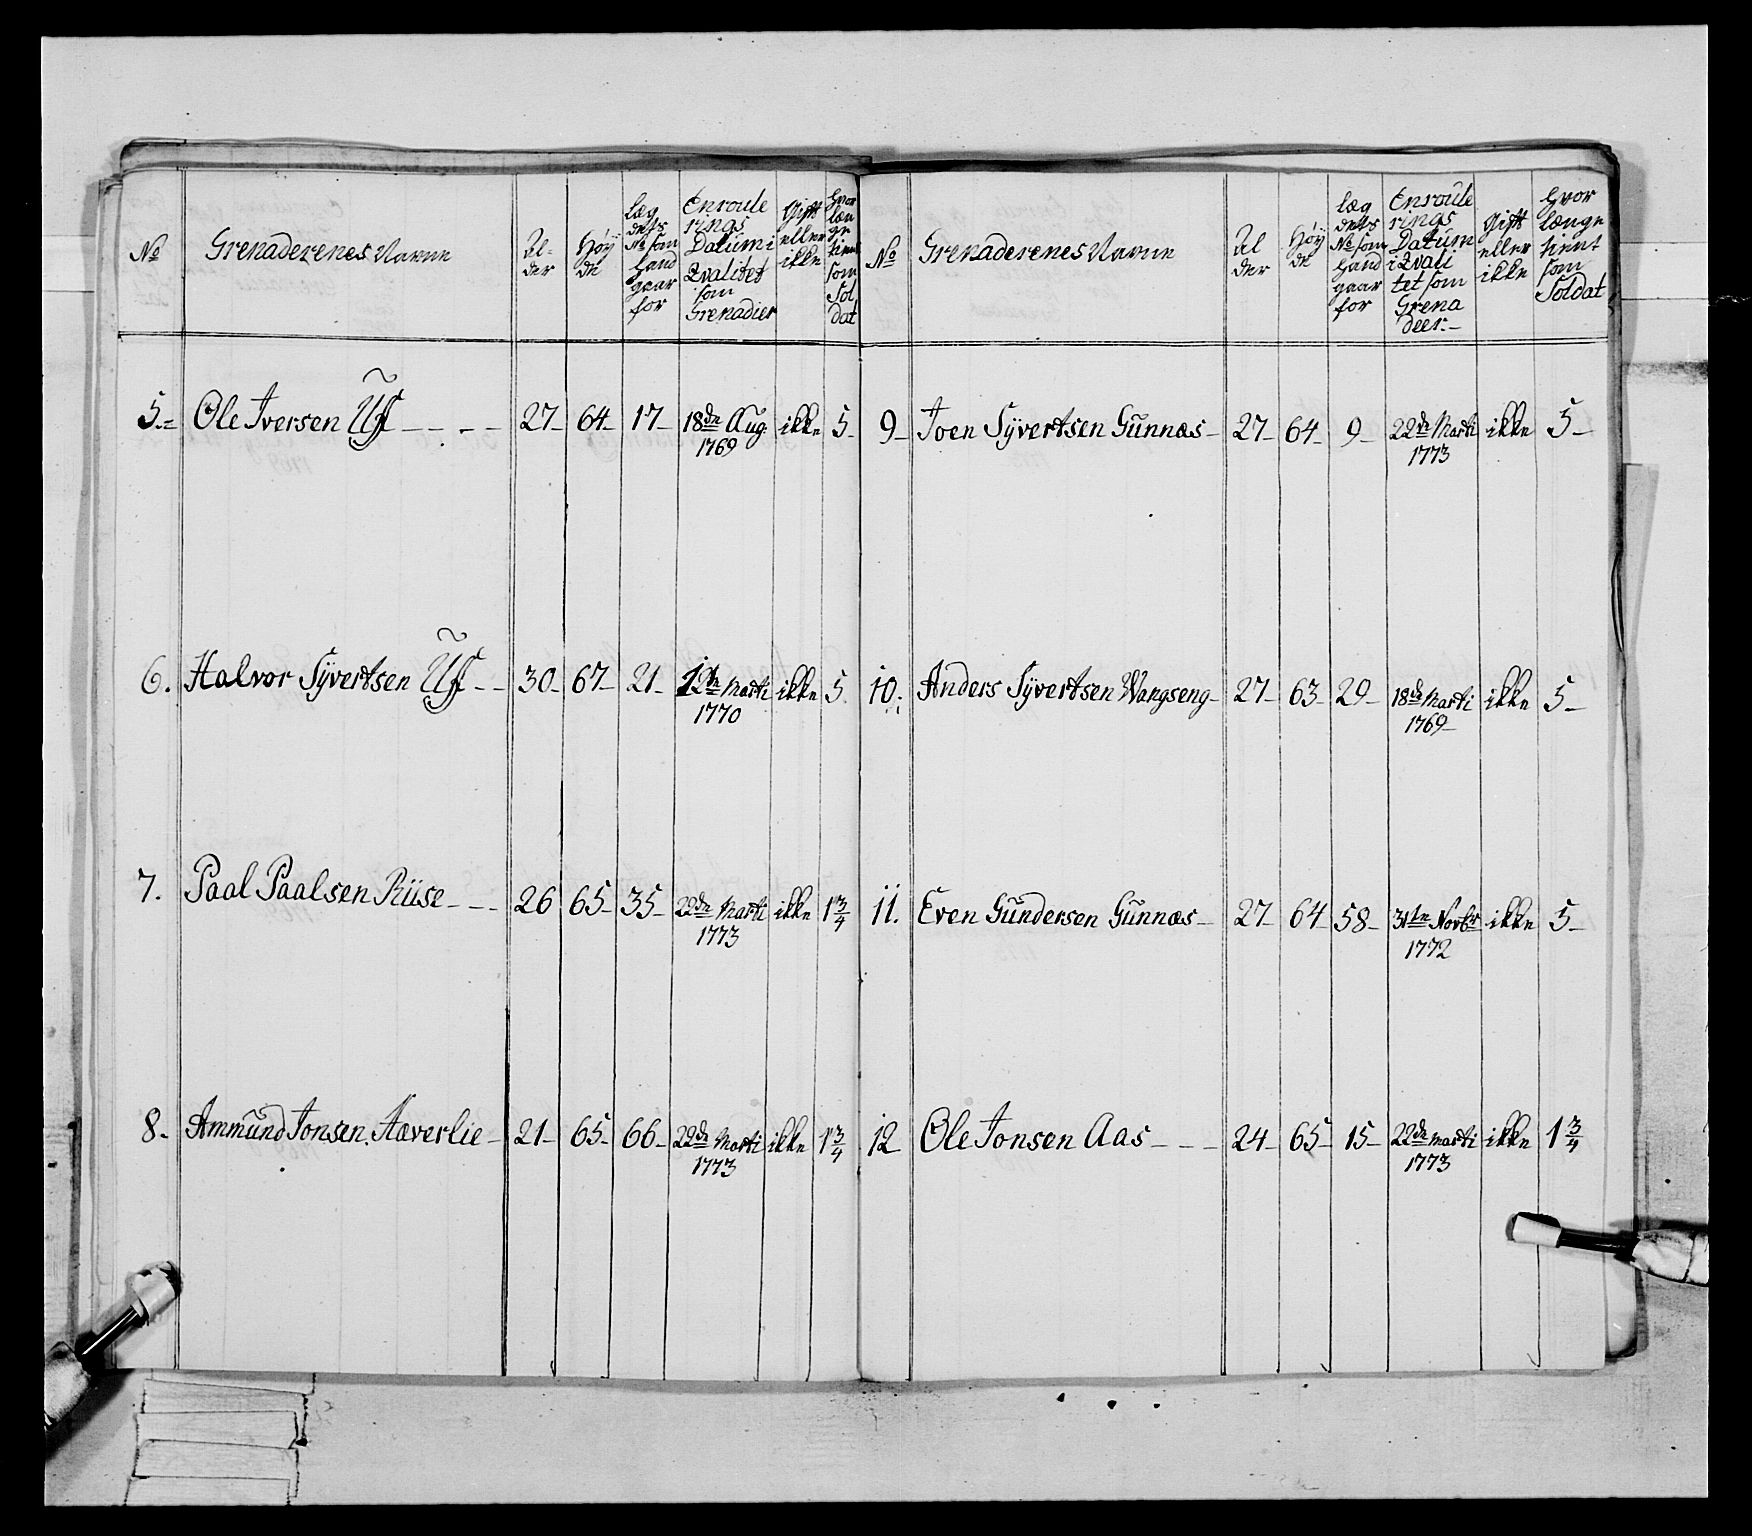 No
Grenaderenes Navne
Al-
der
Høÿ
de
læg
dets
No som
hand
gaar
for
Enroule
rings
Datum i
Qvalitet
som
Grenadier
Gift
eller
ikke
hvor
læn
ge
tient
som
Sol
dat
5. Ole Iversen Uf 27 64 17 18de Aug ikke 5
1769
6. Halvor Sÿvertsen Uf 30 67 21 12te Marti ikke 5
1770
7. Paal Paalsen Riise 26 65 35 22de Marti ikke 1 3/4
1773
8. Ammund Jonsen Haverlie 21 65 66 22de Marti ikke 1 3/4
1773
No
Grenaderenes Navne
Al
der
Høÿ
de
læg
dets
No som
hand
gaar
for
Enroule
rings
Datum
i Qvali
tet som
Grena
deer.
Gift
eller
ikke
hvor
længe
tient
som
Soldat
9 Joen Sÿvertsen Gunnæs 27 64 9 22de Marti ikke 5
1773
10. Anders Sÿvertsen Wangseng 27 63 29 18de Marti ikke 5
1769
11. Even Gundersen Gunnæs 27 64 58 31te Novbr ikke 5
1772
12 Ole Jonsen Aas 24 65 15 22de Marti ikke 1 3/4
1773